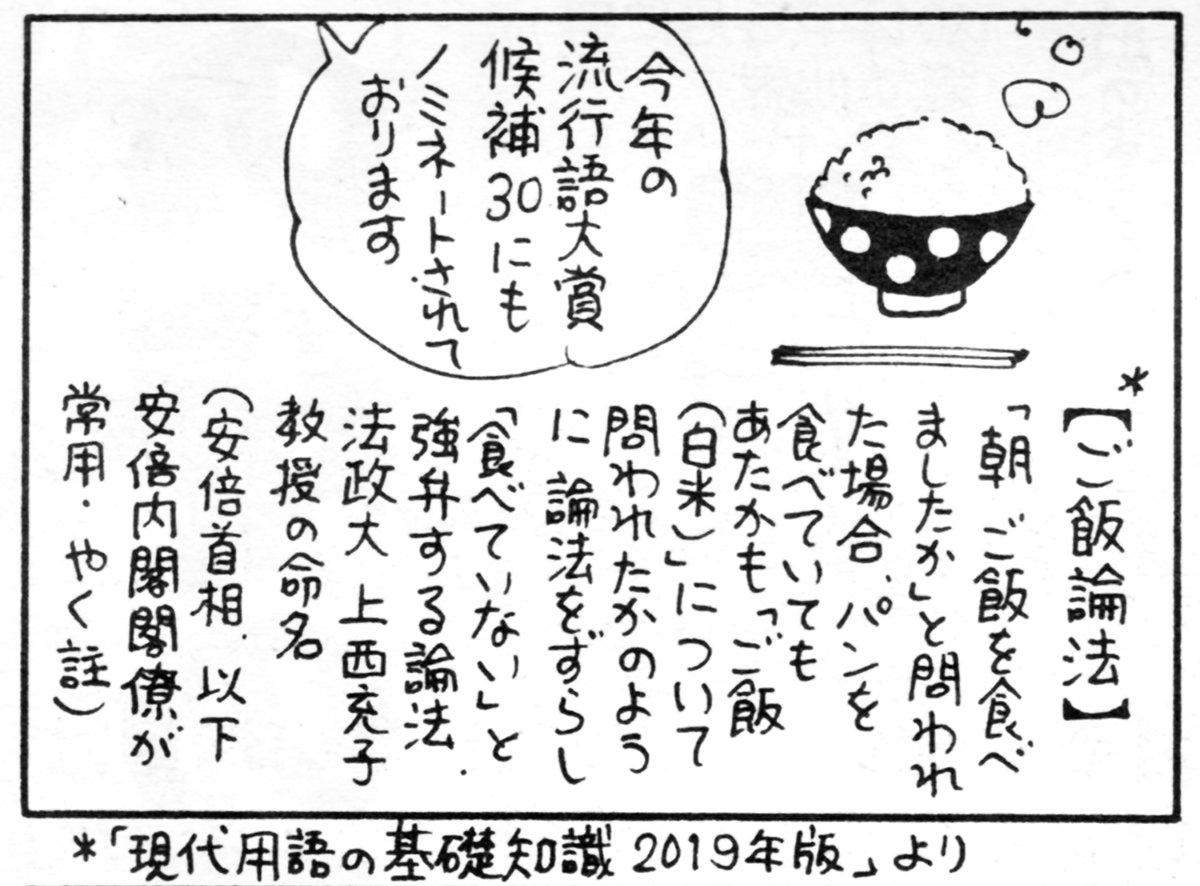 今年の
流行語大賞
候補30にも
ノミネートされて
おります
*
【ご飯論法】
「朝 ご飯を食べ
ましたか」と問われ
た場合、パンを
食べていても
あたかも「ご飯
(白米)」について
問われたかのよう
に 論法をずらし
「食べていない」と
強弁する論法.
法政大 上西充子
教授の命名
(安倍首相、以下
安倍内閣閣僚が
常用・やく註)
*「現代用語の基礎知識 2019年版」より